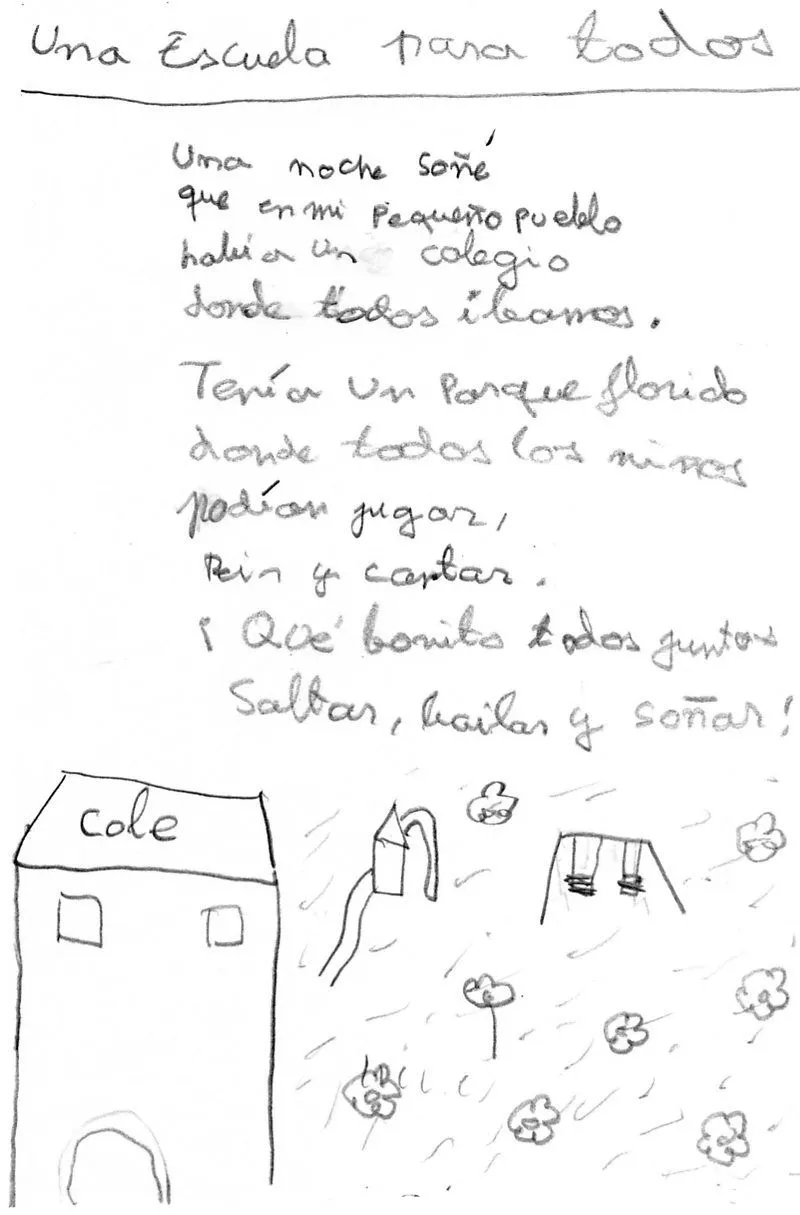 Una Escuela para todos
Una noche soñé
que en mi pequeño pueblo
había un colegio
donde todos íbamos.
Tenía un parque florido
donde todos los niños
podían jugar,
Reír y cantar.
¡Qué bonito todos juntos
Saltar, bailar y soñar!
cole